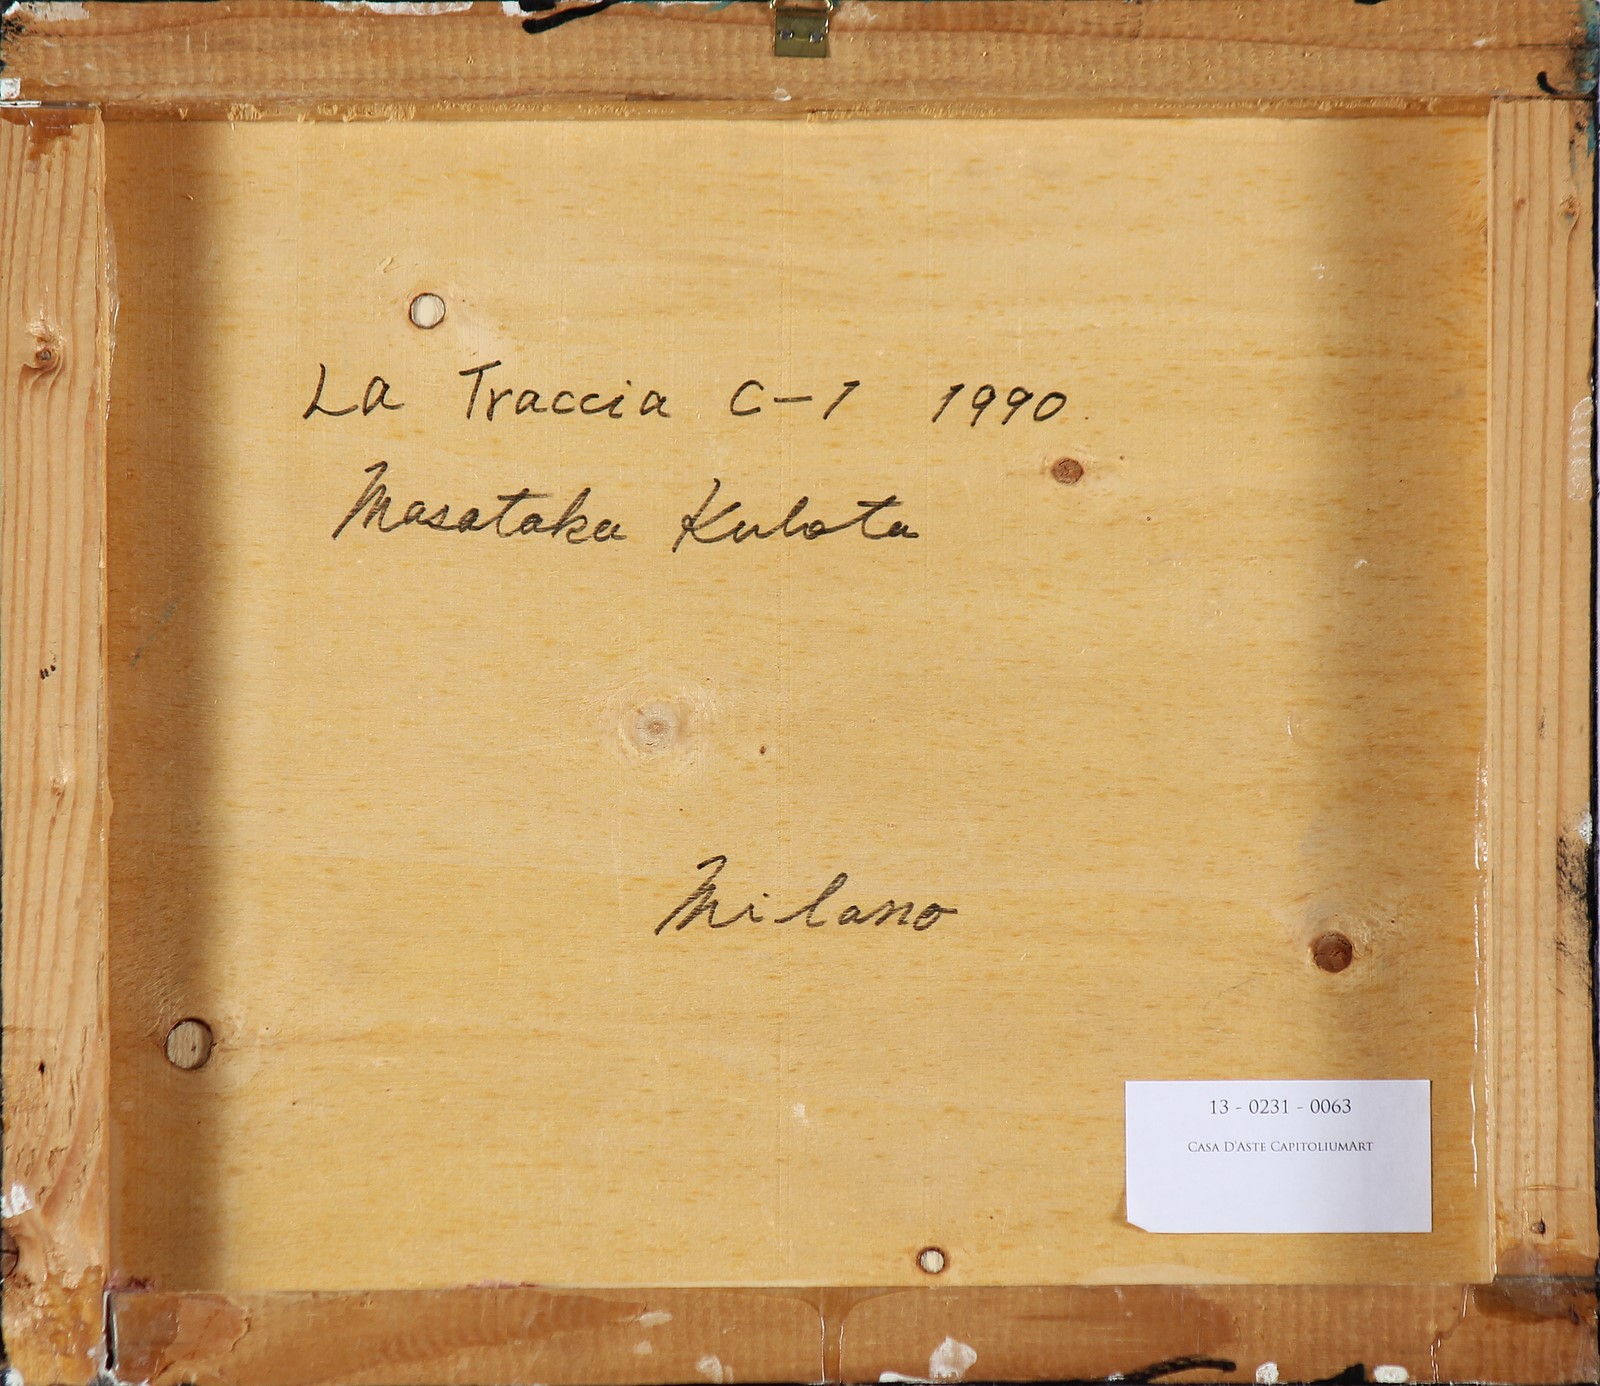 La Traccia C-1 1990
Masataka Kubota
Milano
13 - 0231 - 0063
Casa D'Aste CapitoliumArt